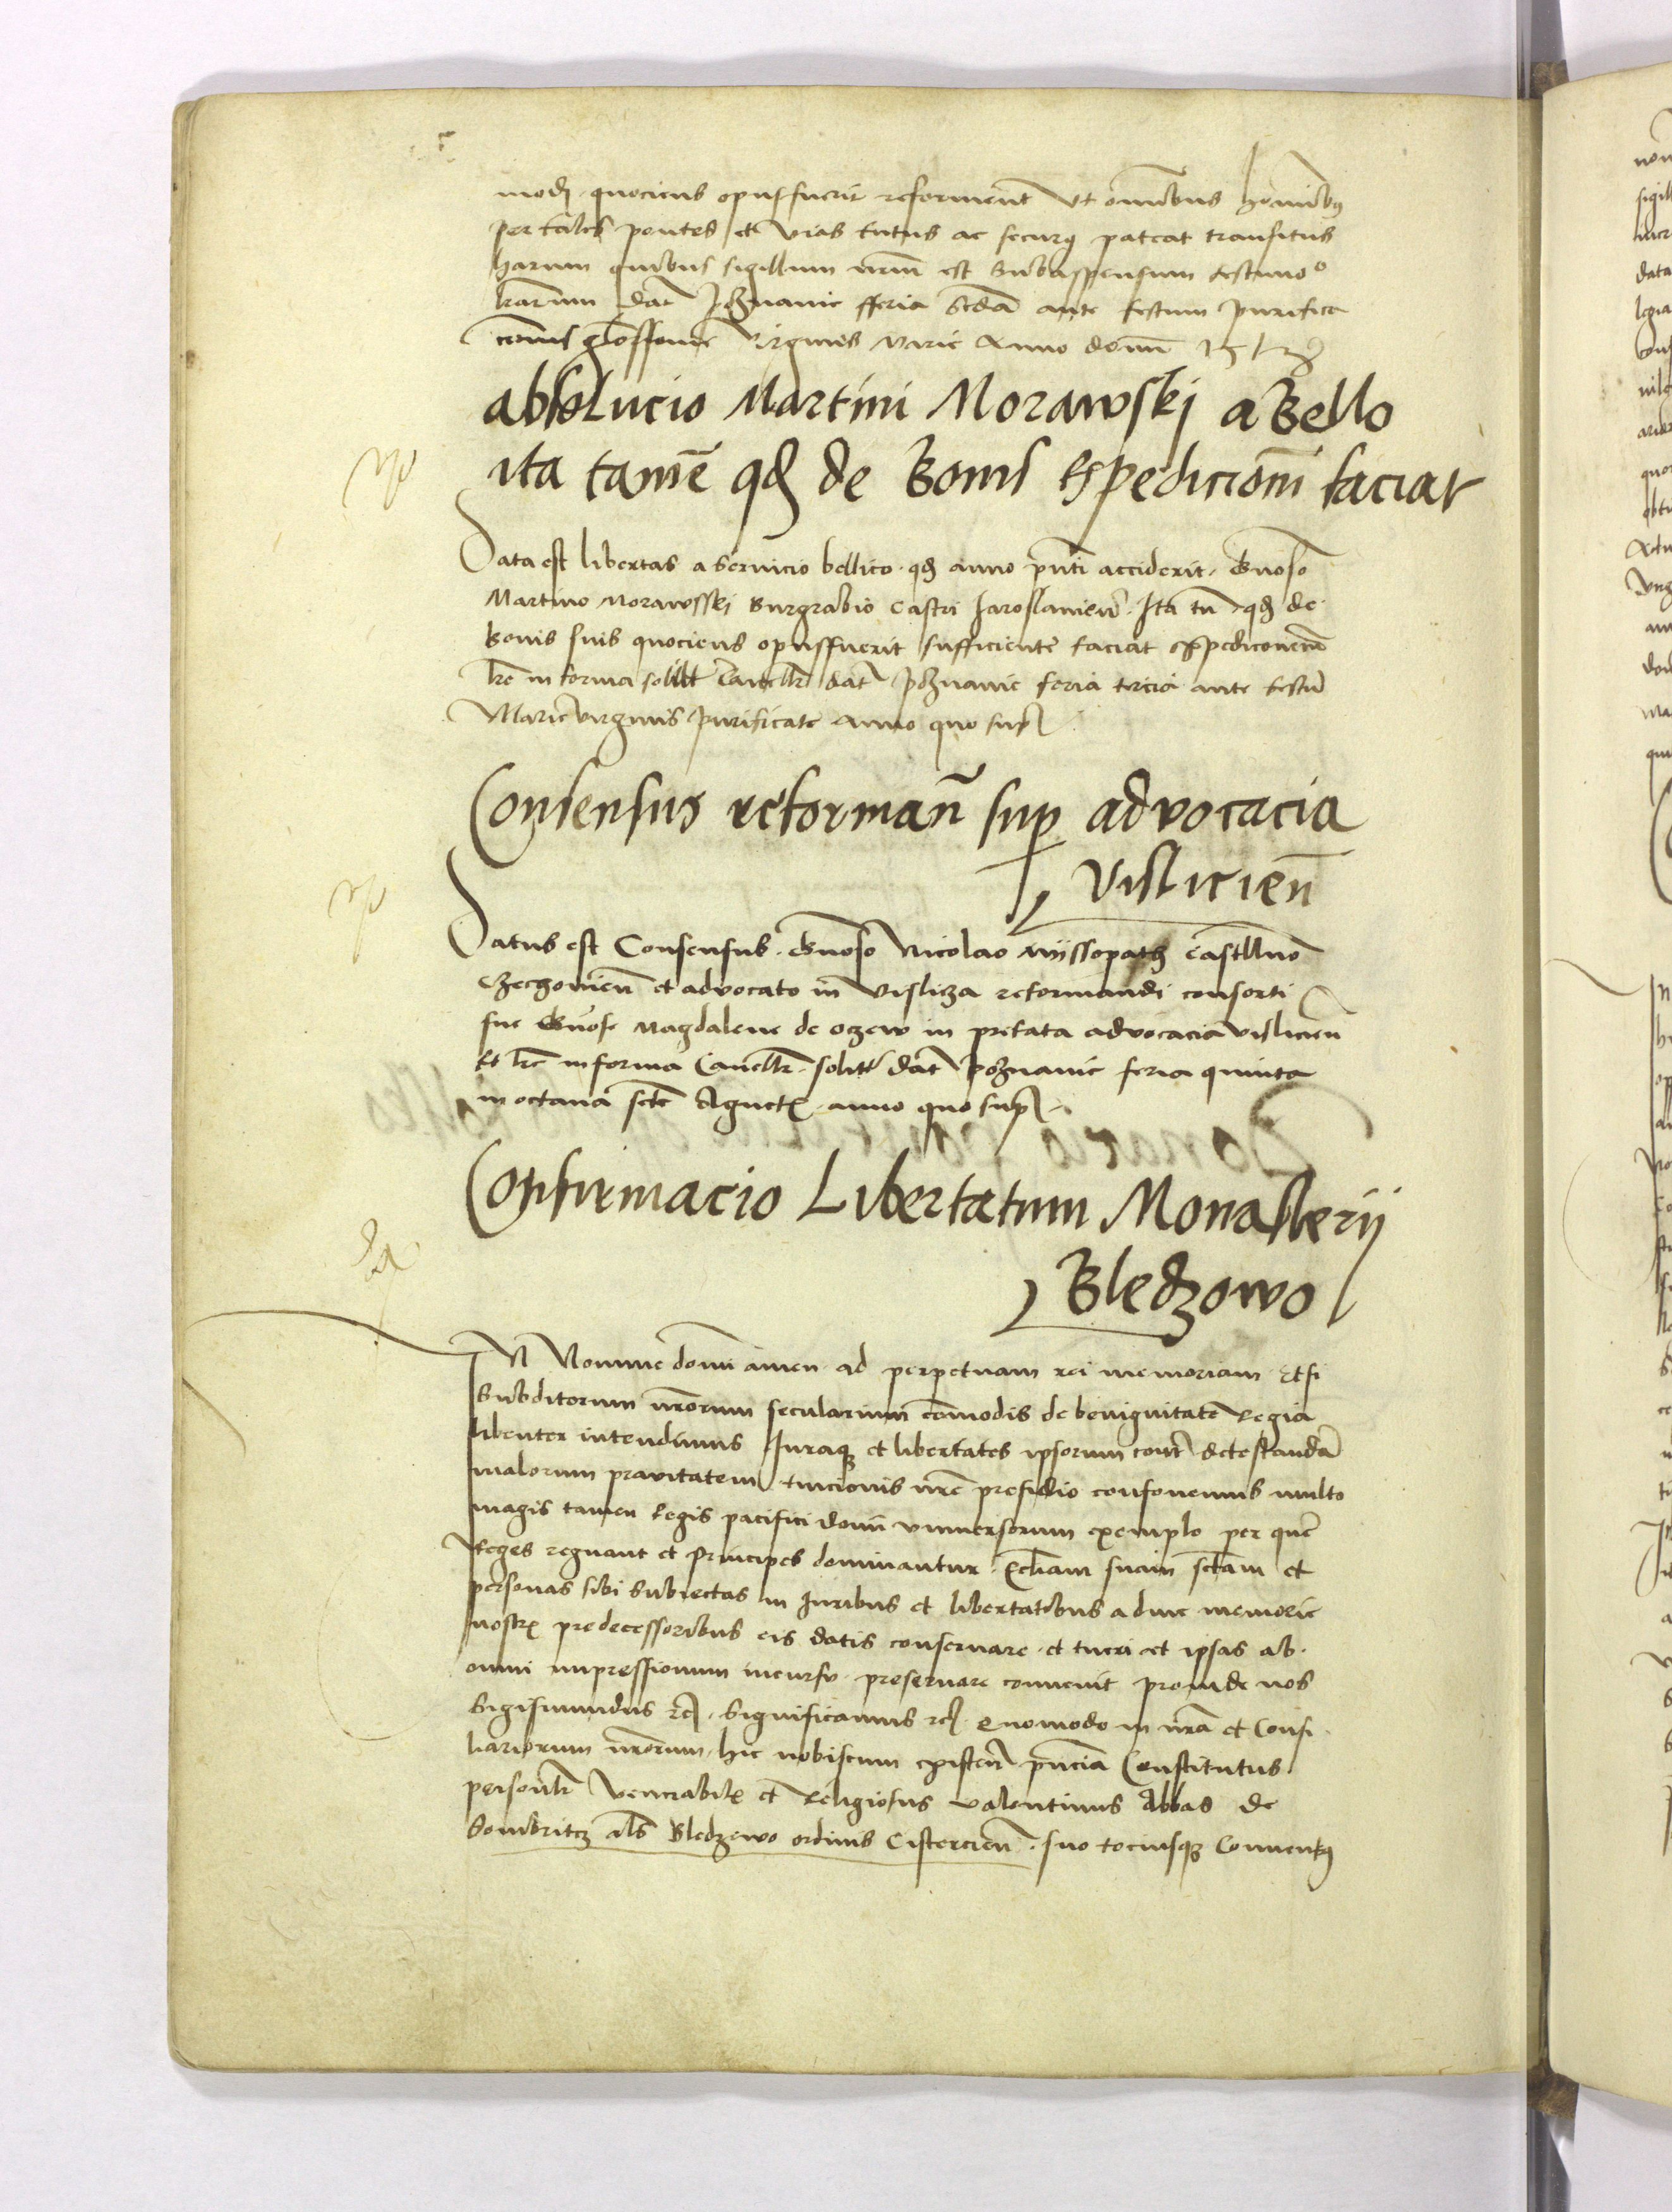 modi quociens opus fuerit reforment Ut omnibus hominibus
per tales pontes et vias tutus ac securus pateat transitus
harum quibus sigillum nrm est Subappensum testimo°
lrarum Dat Poznanie fferia Scda ante festum purifica
cionis glossome virginis Marie Anno domi
absolucio Martini Morawskj a Bello
ita tamē qd de Bonis Expedicionī faciat
Data est libertas a servicio bellico qd anno pnti acciderit Gnoso
Martino Morawsskj Burgrabio castri Jaroslavien. Ita tn qd de
bonis suis quociens opusffuerit sufficiente faciat expediconem
lre in forma solitt Cancellr dat Poznanie feria tercia ante festū
Marie virginis purificate Anno quo sup
Consensus reformañ sup advocacia
Vislicień
Datus est Consensus Gnoso Nicolao Myssopath castllno
Czechovien et advocato in Vislicza reformandi consorti
sue Gnose Magdalene de oczew in prefata advocacia vislicien
Et lre in forma Cancellr solitt dat Poznanie feria quinta
in octava scte Agnetis anno quo sup
Confirmacio Libertatum Monasterij
Bledzowo
IN Nomine domi amen ad perpetuam rei memoriam Etsi
Subditorum nrorum secularium comodis de benignitate Regia
libenter intendimus Juraq et libertates ipsorum cont detestandā
malorum pravitatem tuicionis nre presidio confovemus multo
magis tamen Regis pacifici domī universorum exemplo per quē
Reges regnant et principes dominantur Eccliam suam sctam et
personas sibi subiectas in Juribus et libertatibus a dive memorie
nostris predecessoribus eis datis conservare et tueri et ipsas ab
omni impressionum incursu preservare convenit proinde nos
Sigismundus etc Significamus etc Quomodo in nra et Consi
liariorum nrorum hic nobiscum existen pncia Constitutus
personlr venerabilis et religiosus valentinus Abbas de
Sombritcz als Bledzewo ordinis Cistercien suo tociusq Conventus